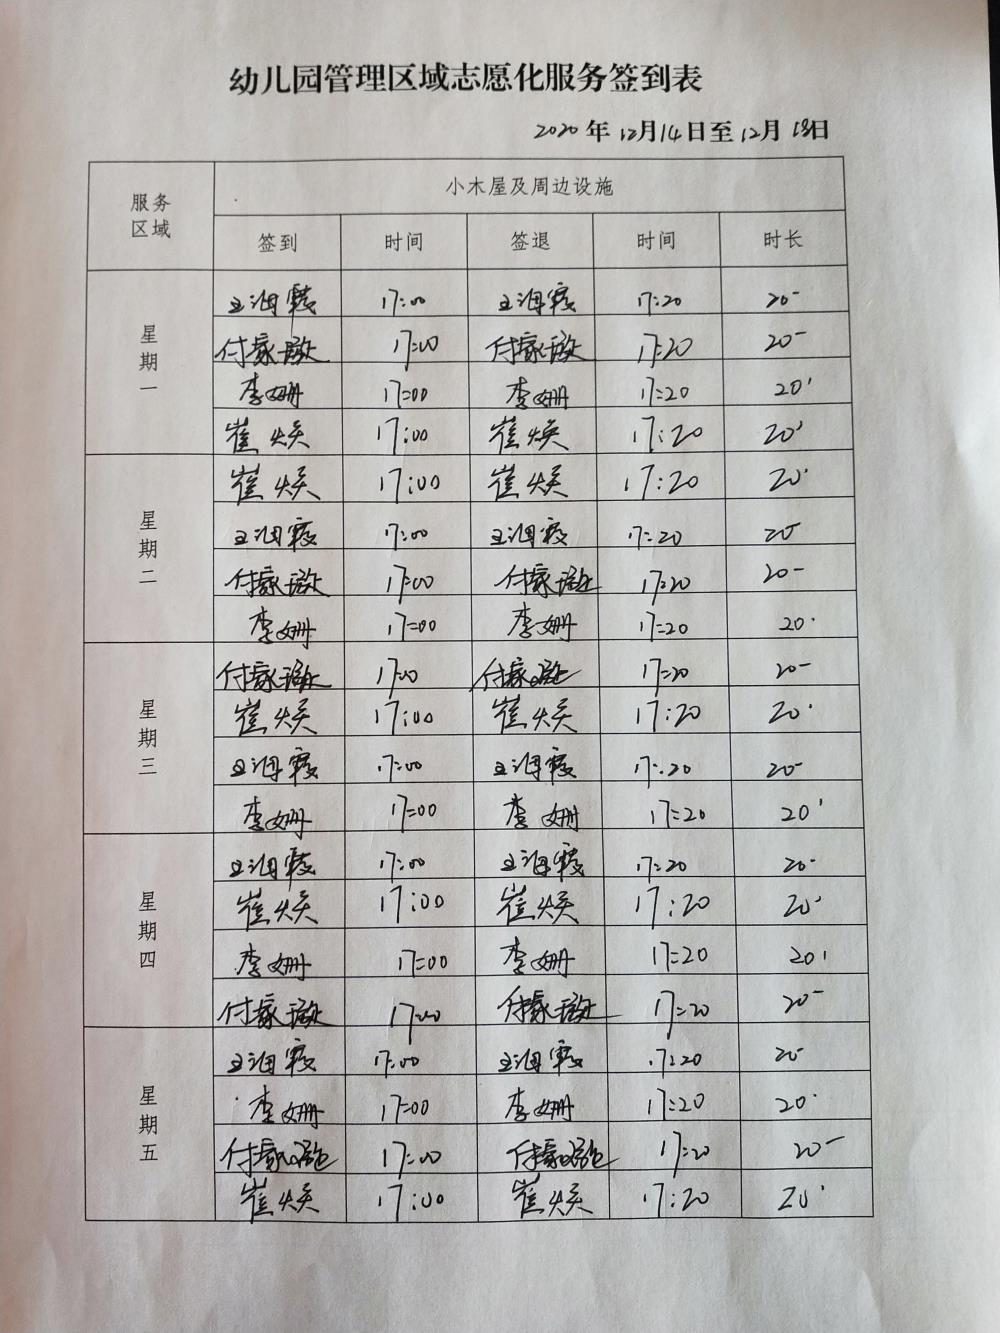 幼儿园管理区域志愿化服务签到表
2020年12月14日至12月18日
服务区域 小木屋及周边设施
签到 时间 签退 时间 时长
星期一
王海霞 17:00 王海霞 17:20 20'
付家 17:00 付家 17:20 20'
李姗 17:00 李姗 17:20 20'
崔焕 17:00 崔焕 17:20 20'
星期二
崔焕 17:00 崔焕 17:20 20'
王海霞 17:00 王海霞 17:20 20'
付家 17:00 付家 17:20 20'
李姗 17:00 李姗 17:20 20'
星期三
付家 17:00 付家 17:20 20'
崔焕 17:00 崔焕 17:20 20'
王海霞 17:00 王海霞 17:20 20'
李姗 17:00 李姗 17:20 20'
星期四
王海霞 17:00 王海霞 17:20 20'
崔焕 17:00 崔焕 17:20 20'
李姗 17:00 李姗 17:20 20'
付家 17:00 付家 17:20 20'
星期五
王海霞 17:00 王海霞 17:20 20'
李姗 17:00 李姗 17:20 20'
付家 17:00 付家 17:20 20'
崔焕 17:00 崔焕 17:20 20'